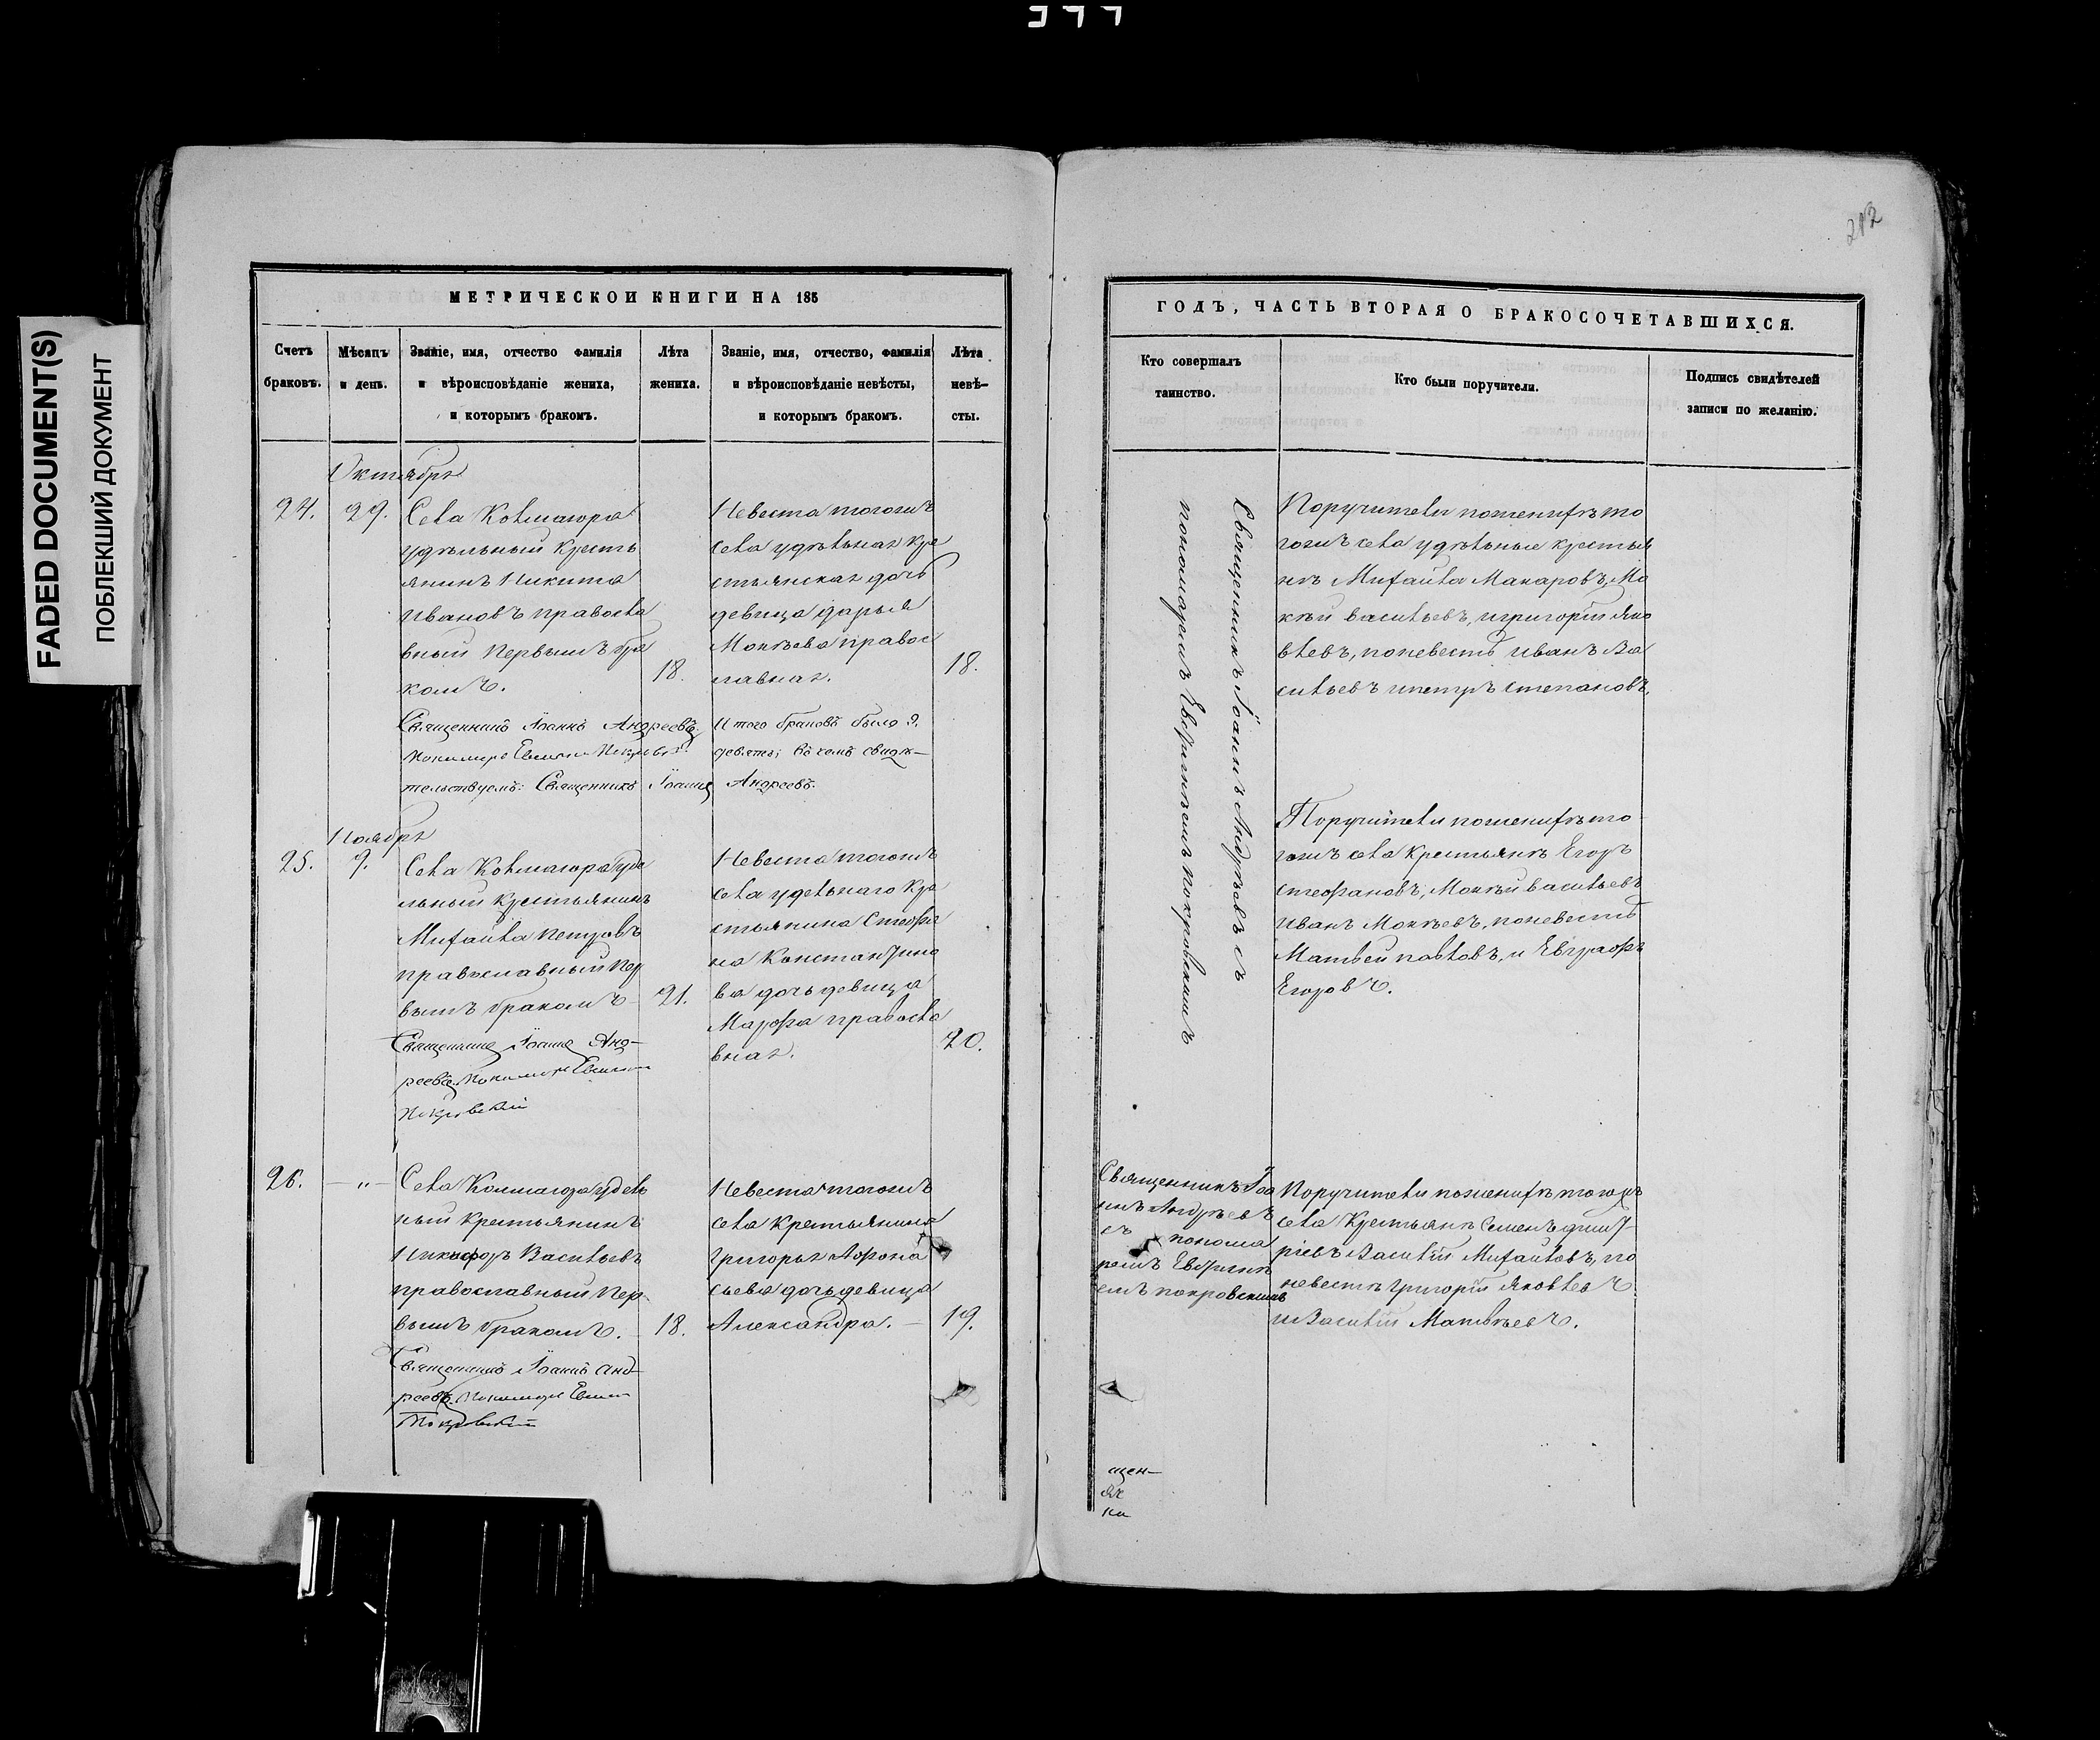 FADED DOCUMENT(S)
ПОБЛЕКШИЙ ДОКУМЕНТ
212
МЕТРИЧЕСКОЙ КНИГИ НА 185
Счетъ браковъ.
Мѣсяцъ и день.
Званіе, имя, отчество фамилія
и вѣроисповѣданіе жениха,
и которымъ бракомъ.
Лѣта
жениха.
Званіе, имя, отчество, фамилія
и вѣроисповѣданіе невѣсты,
и которымъ бракомъ.
Лѣта
невѣ-
сты.
Октября
24.
29.
Села Колмаюра
удѣльный кресть
янинъ Никита
Ивановъ правосла
вный первымъ бра
комъ.
18.
Невеста тогожъ
села удѣльная кре
стьянская дочь
девица Дарья
Мокѣева правос
лавная.
18.
Священникъ Іоаннъ Андреевъ
Итого браковъ было 9.
девять; въ чемъ свидѣ-
тельствуемъ: Священникъ Іоаннъ Андреевъ.
Ноября
25.
9.
Села Колмаюра уде
льный крестьянинъ
Михайла Петровъ
православный пер
вымъ бракомъ
21.
Невеста тогожъ
села удельнаго кре
стьянина Стефа
на Константино
ва дочь девица
Марфа правосла
вная.
20.
Священникъ Іоаннъ Анд-
реевъ.
Покровскій
26.
— „ —
Села Колмаюра удель
ный крестьянинъ
Никифоръ Васильевъ
православный пер
вымъ бракомъ.
18.
Невеста тогожъ
села крестьянина
Григорья Афона
сьева дочь девица
Александра.
19.
Священникъ Іоаннъ Анд-
реевъ.
Покровскій
ГОДЪ, ЧАСТЬ ВТОРАЯ О БРАКОСОЧЕТАВШИХСЯ.
Кто совершалъ
таинство.
Кто были поручители.
Подпись свидѣтелей
записи по желанію.
Священникъ Іоаннъ Андрѣевъ съ
пономаремъ Евфимиемъ Покровскимъ
Поручители поженихѣ то
гожъ села удѣльные крестья
нѣ Михайла Макаровъ, Мо
кѣй Васильевъ, и Григорій Яко
влевъ, поневестѣ Иванъ Ва
сильевъ и Петръ Степановъ.
Поручители поженихѣ то
гожъ села крестьянѣ Егоръ
Стефановъ, Мокѣй Васильевъ
Иванъ Мокѣевъ, поневестѣ
Матвѣй Павловъ, и Евграфъ
Егоровъ.
Священникъ Іоа
ннъ Андрѣевъ
съ понома
ремъ Евфими
емъ Покровскимъ
Поручители поженихѣ тогожъ
села крестьянѣ Семенъ Дмит
ріевъ Василій Михайловъ, по
невестѣ Григорій Яковлевъ
и Василій Матвѣевъ.
щен-